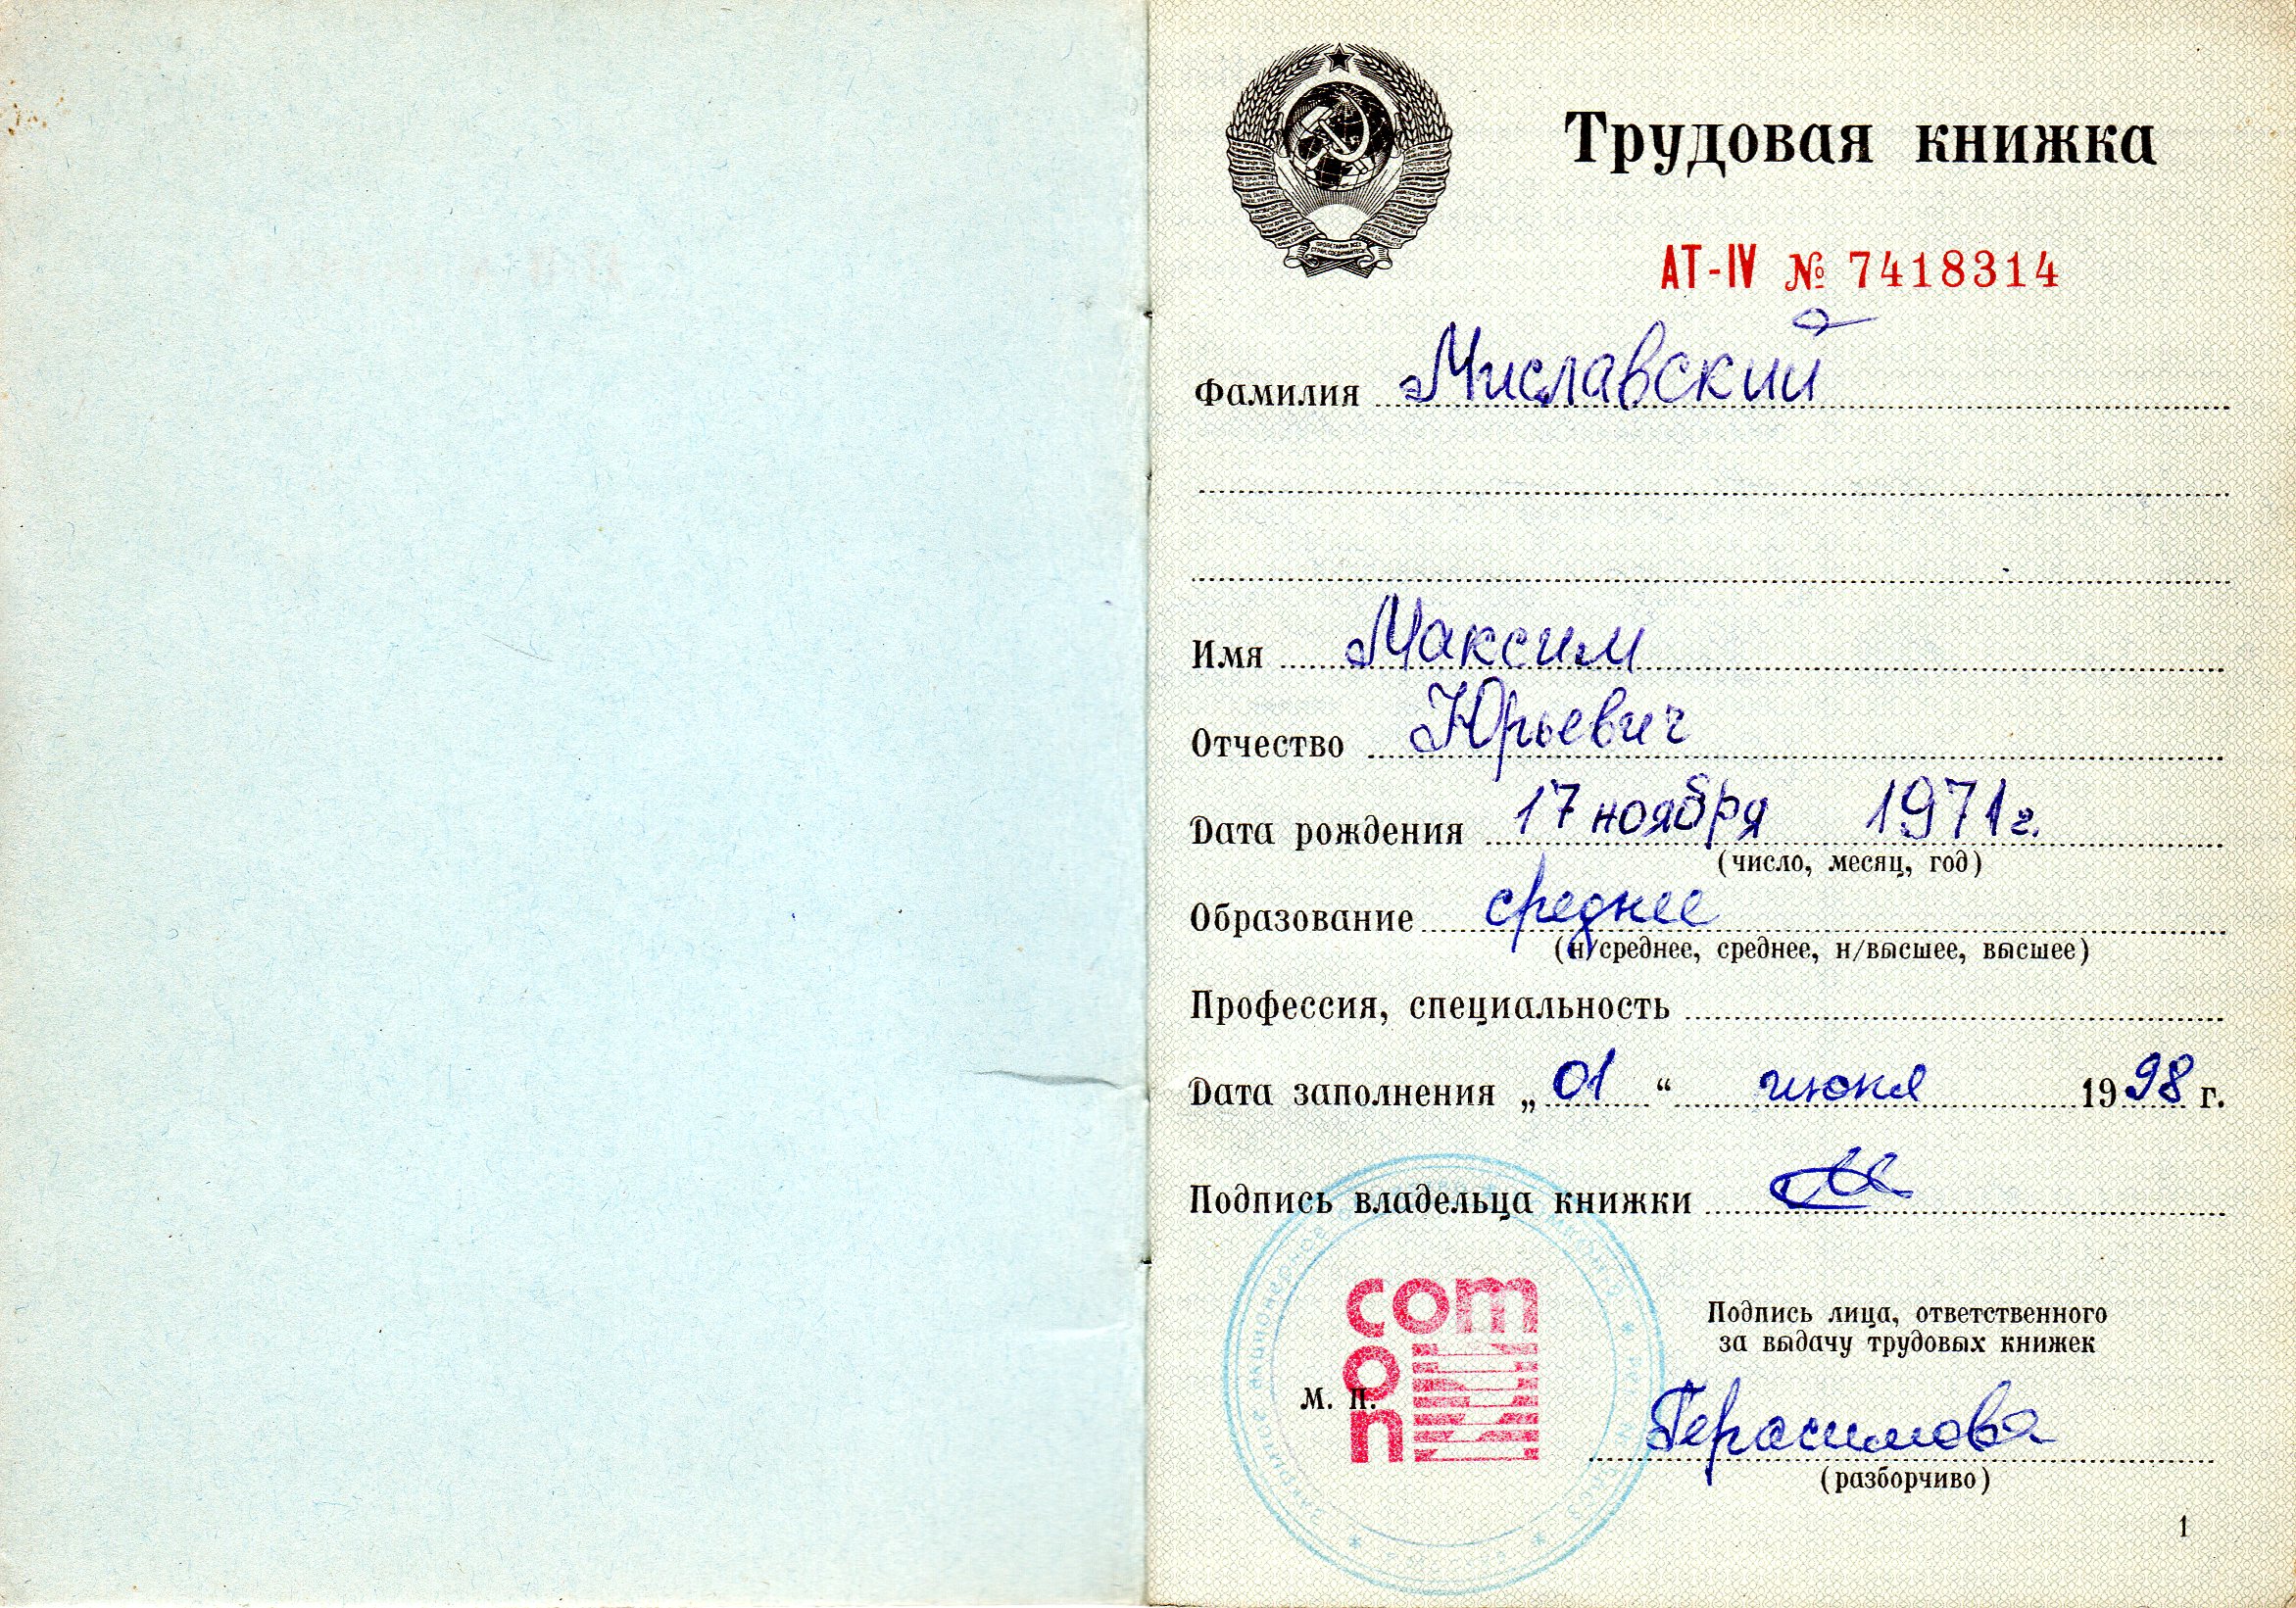 Трудовая книжка
АТ-IV № 7418314
Фамилия Миславский
Имя Максим
Отчество Юрьевич
Дата рождения 17 ноября 1971 г.
(число, месяц, год)
Образование среднее
(н/среднее, среднее, н/высшее, высшее)
Профессия, специальность
Дата заполнения „01“ июня 1998 г.
Подпись владельца книжки
com
on
Подпись лица, ответственного
за выдачу трудовых книжек
М. П.
Герасимова
(разборчиво)
1